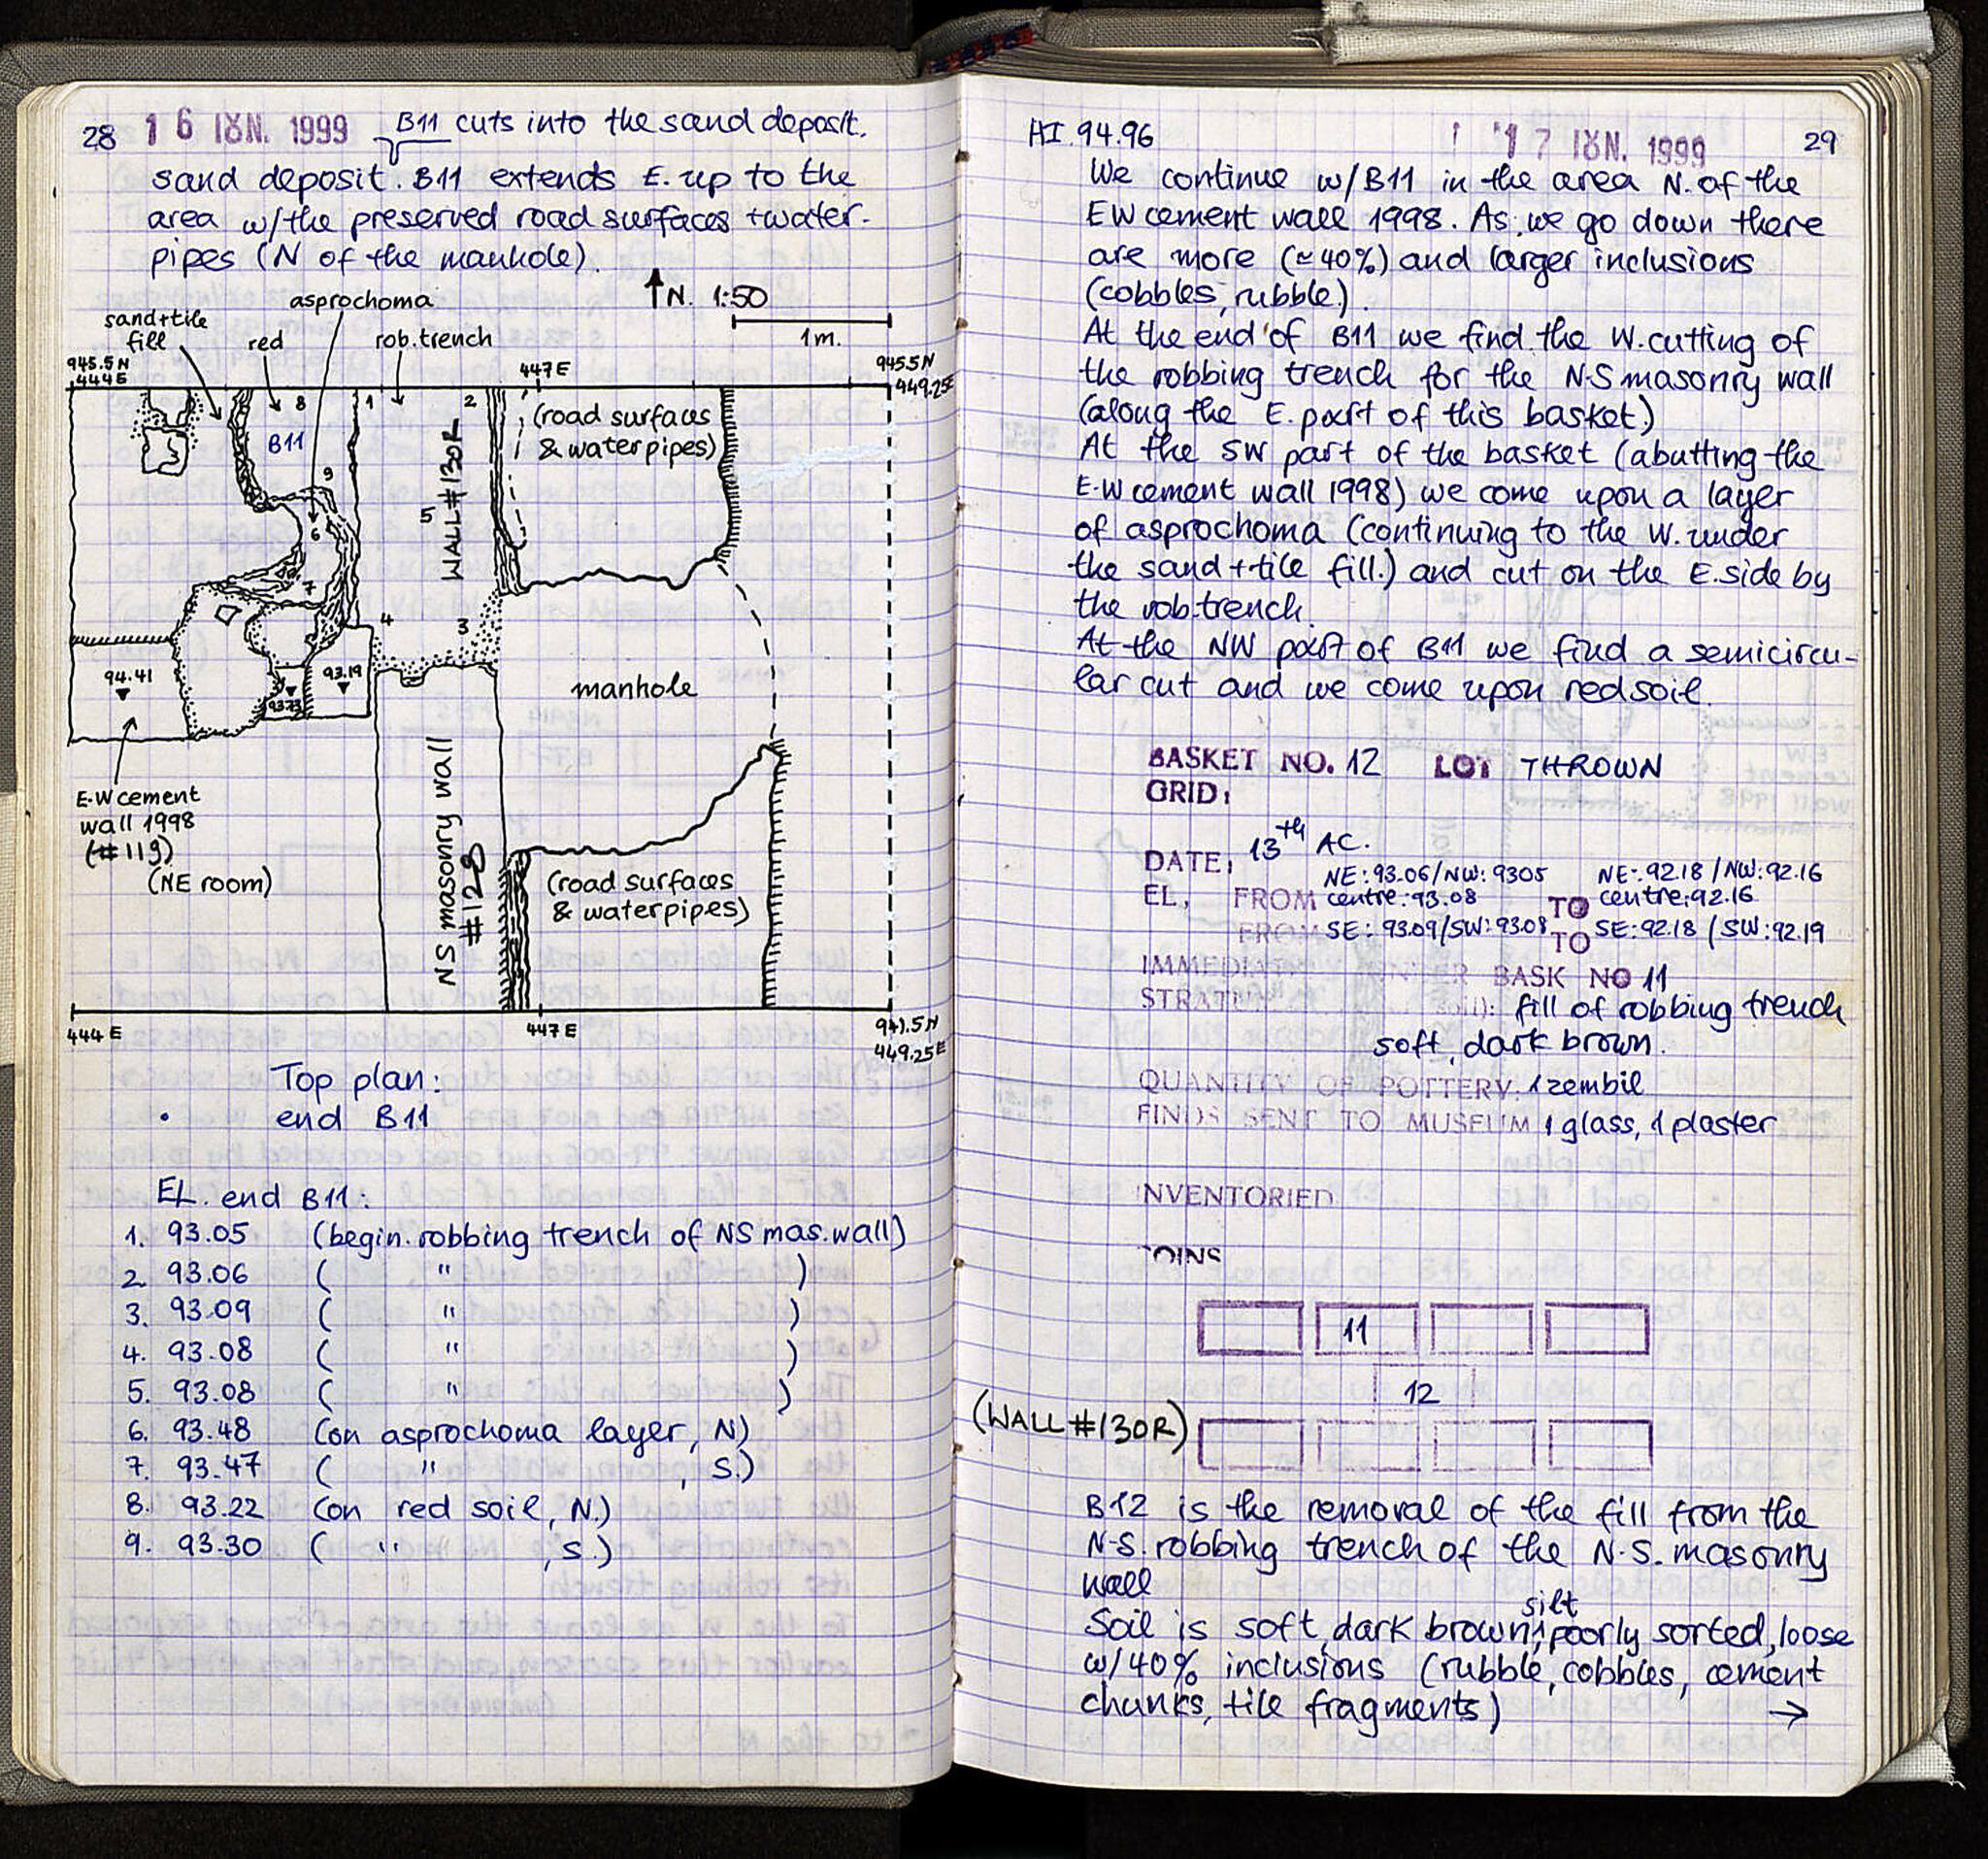 28 16 ΙΟΥΝ. 1999 B11 cuts into the sand deposit.
sand deposit. B11 extends E. up to the
area w/the preserved road surfaces + water-
pipes (N of the manhole).
↑N. 1:50
1m.
asprochoma
sand+tile
fill
red
rob.trench
945.5N
444E
447E
945.5N
449.25E
8
1
2
B11
9
5
6
7
4
3
WALL #130R
(road surfaces
& waterpipes)
94.41
93.73
93.19
manhole
E-W cement
wall 1998
(#119)
(NE room)
NS masonry wall
#128
(road surfaces
& waterpipes)
444E
447E
941.5N
449.25E
Top plan:
• end B11
EL. end B11:
1. 93.05 (begin. robbing trench of NS mas.wall)
2. 93.06 ( " )
3. 93.09 ( " )
4. 93.08 ( " )
5. 93.08 ( " )
6. 93.48 (on asprochoma layer, N)
7. 93.47 ( " , S.)
8. 93.22 (on red soil, N.)
9. 93.30 ( " " , S.)
HI.94.96 17 ΙΟΥΝ. 1999 29
We continue w/B11 in the area N. of the
EW cement wall 1998. As we go down there
are more (≃40%) and larger inclusions
(cobbles, rubble.)
At the end of B11 we find the W. cutting of
the robbing trench for the N-S masonry wall
(along the E. part of this basket.)
At the SW part of the basket (abutting the
E-W cement wall 1998) we come upon a layer
of asprochoma (continuing to the W. under
the sand + tile fill.) and cut on the E. side by
the rob.trench.
At the NW part of B11 we find a semicircu-
lar cut and we come upon red soil.
BASKET NO. 12 LOT THROWN
GRID:
DATE: 13th AC.
NE: 93.06/NW: 9305 NE-: 92.18 / NW: 92.16
EL. FROM centre: 93.08 TO centre: 92.16
FROM SE: 93.09/SW: 93.08 TO SE: 92.18 / SW: 92.19
UNDER BASK NO 11
soil): fill of robbing trench
soft, dark brown.
QUANTITY OF POTTERY: 1 zembil
FINDS SENT TO MUSEUM 1 glass, 1 plaster
INVENTORIED
COINS
11
12
(WALL #130R)
B12 is the removal of the fill from the
N-S. robbing trench of the N-S. masonry
wall
Soil is soft, dark brown, silt poorly sorted, loose
w/40% inclusions (rubble, cobbles, cement
chunks, tile fragments) →